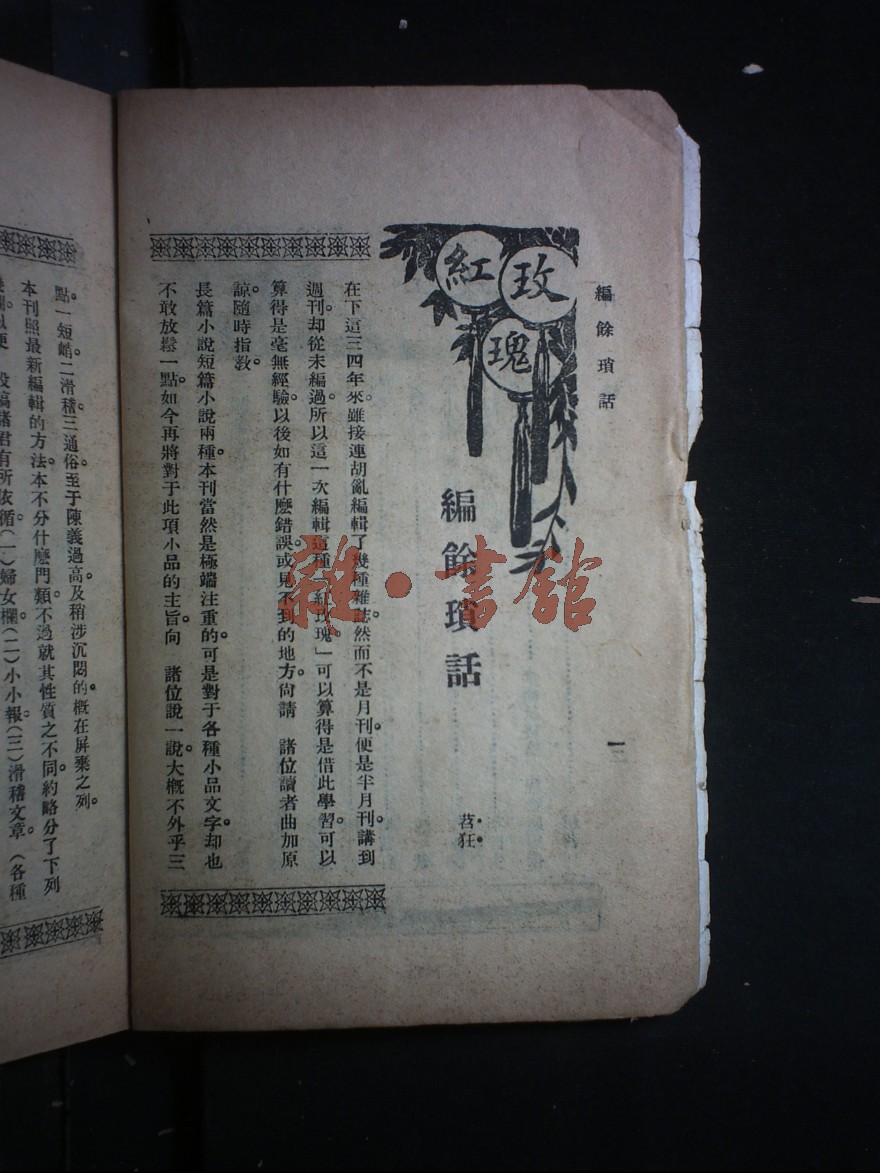 編餘瑣話
一
紅玫瑰
編餘瑣話
苕狂
在下這三四年來。雖接連胡亂編輯了幾種雜誌然而不是月刊。便是半月刊。講到
週刊。却從未編過。所以這一次編輯這種「紅玫瑰」可以算得是借此學習。可以
算得是毫無經驗。以後如有什麽錯誤。或見不到的地方。尙請 諸位讀者曲加原
諒。隨時指敎。
長篇小說短篇小說兩種。本刊當然是極端注重的。可是對于各種小品文字。却也
不敢放鬆一點。如今再將對于此項小品的主旨。向 諸位說一說。大概不外乎三
點。一短峭二滑稽三通俗至于陳義過高。及稍涉沉悶的。概在屏棄之列。
本刊照最新編輯的方法。本不分什麽門類。不過就其性質之不同。約略分了下列
投稿諸君有所依循。(一)婦女欄(二)小小報(三)滑稽文章。(各種
雜·書館